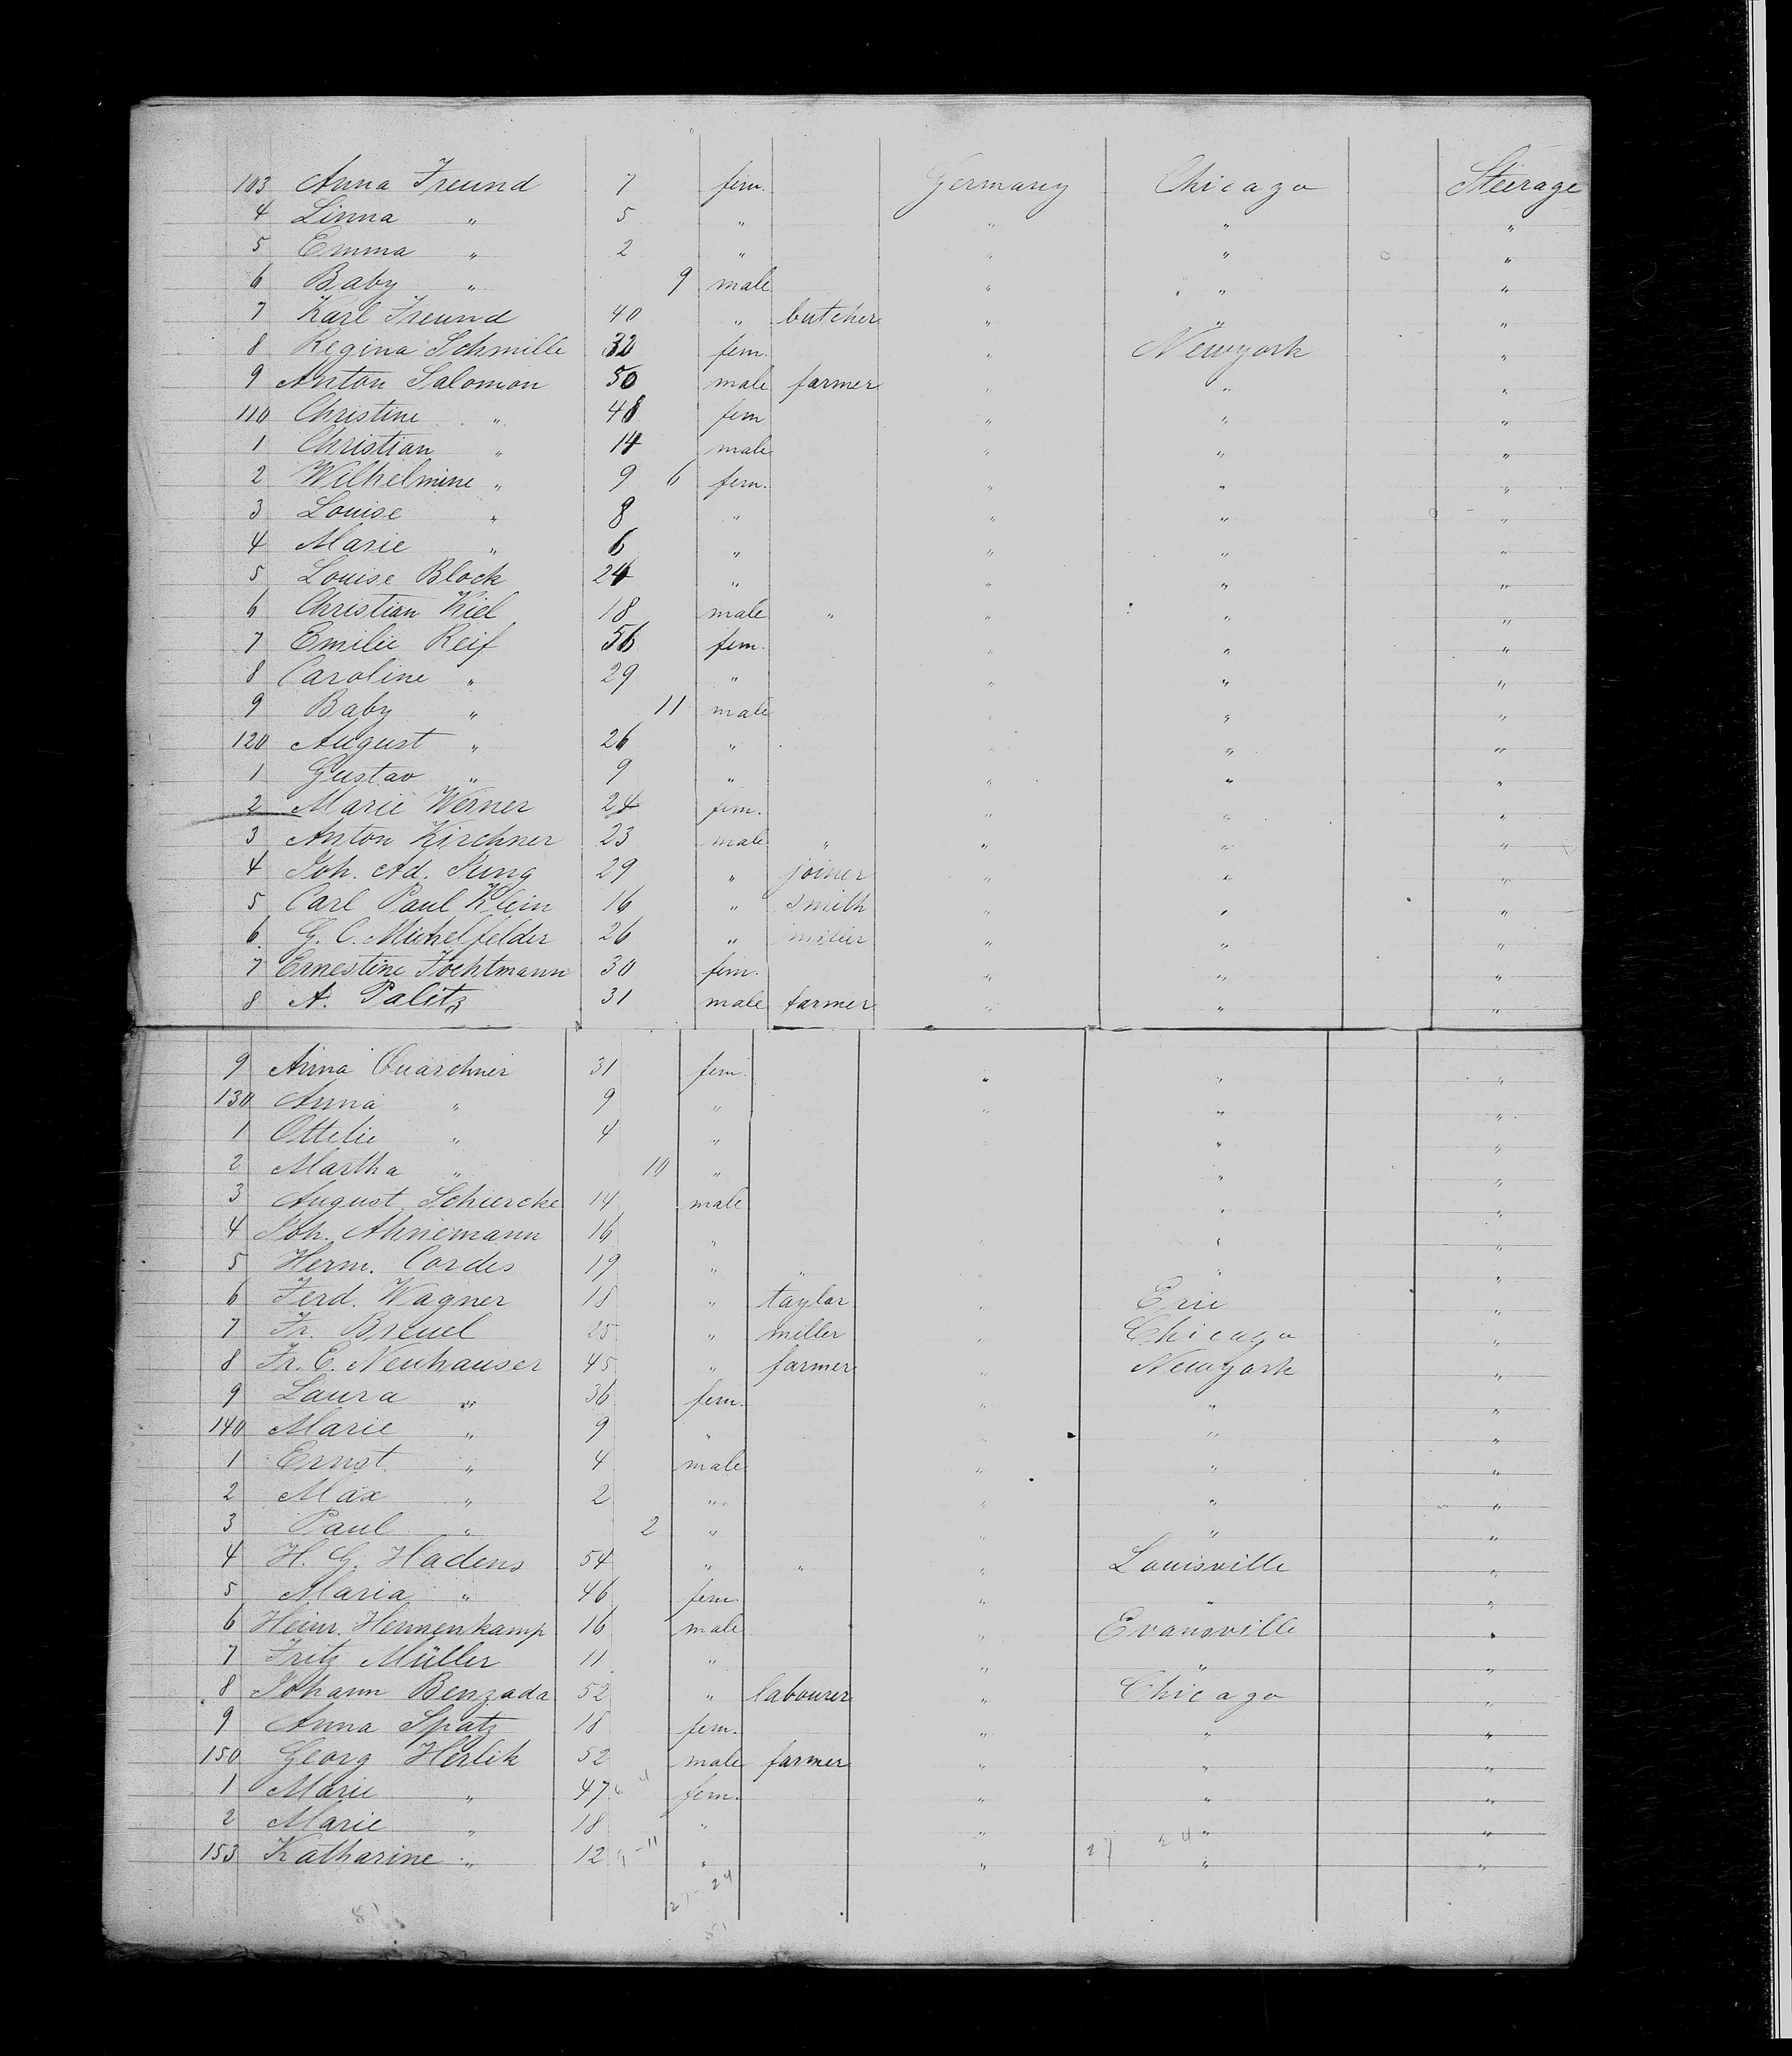 103 Anna Freund 7 fem. Germany Chicago Steerage
4 Linna " 5 " " " "
5 Emma " 2 " " " "
6 Baby " 9 male " " "
7 Karl Freund 40 " butcher " " "
8 Regina Schmille 32 fem. " Newyork "
9 Anton Salomon 50 male farmer " " "
110 Christine " 48 fem " " "
1 Christian " 14 male " " "
2 Wilhelmine " 9 6 fem. " " "
3 Louise " 8 " " " "
4 Marie " 6 " " " "
5 Louise Block 24 " " " "
6 Christian Kiel 18 male " " " "
7 Emilie Reif 56 fem. " " "
8 Caroline " 29 " " " "
9 Baby " 11 male " " "
120 August " 26 " " " "
1 Gustav " 9 " " " "
2 Marie Werner 24 fem. " " "
3 Anton Kirchner 23 male " " " "
4 Joh. Ad. Jung 29 " joiner " " "
5 Carl Paul Klein 16 " smith " " "
6. G. C. Michelfelder 26 " miller " " "
7 Ernestine Fochtmann 30 fem. " " "
8 A. Palitz 31 male farmer " " "
9 Anna Quarchner 31 fem. " " "
130 Anna " 9 " " " "
1 Ottelie " 4 " " "
2 Martha " 10 " " "
3 August Schiercke 14 male " "
4 Joh. Ahnemann 16 " " " "
5 Herm. Cordes 19 " " " " "
6 Ferd. Wagner 18 " taylor " Erie "
7 Fr. Breuel 25 " miller " Chicago "
8 Fr. E. Neuhauser 45 " farmer " Newyork "
9 Laura " 36 fem. " " "
140 Marie " 9 " " " "
1 Ernst " 4 male " " "
2 Max " 2 " " " "
3 Paul " 2 " " " "
4 H. G. Hadens 54 " " " Louisville "
5 Maria " 46 fem. " " "
6 Heinr. Hennenkamp 16 male " Evansville "
7 Fritz Müller 11 " " " "
8 Johann Benzada 52 " labourer " Chicago "
9 Anna Spatz 18 fem. " " "
150 Georg Herlik 52 male farmer " " "
1 Marie " 47 fem. " " "
2 Marie " 18 " " " "
153 Katharine " 12 " " " "